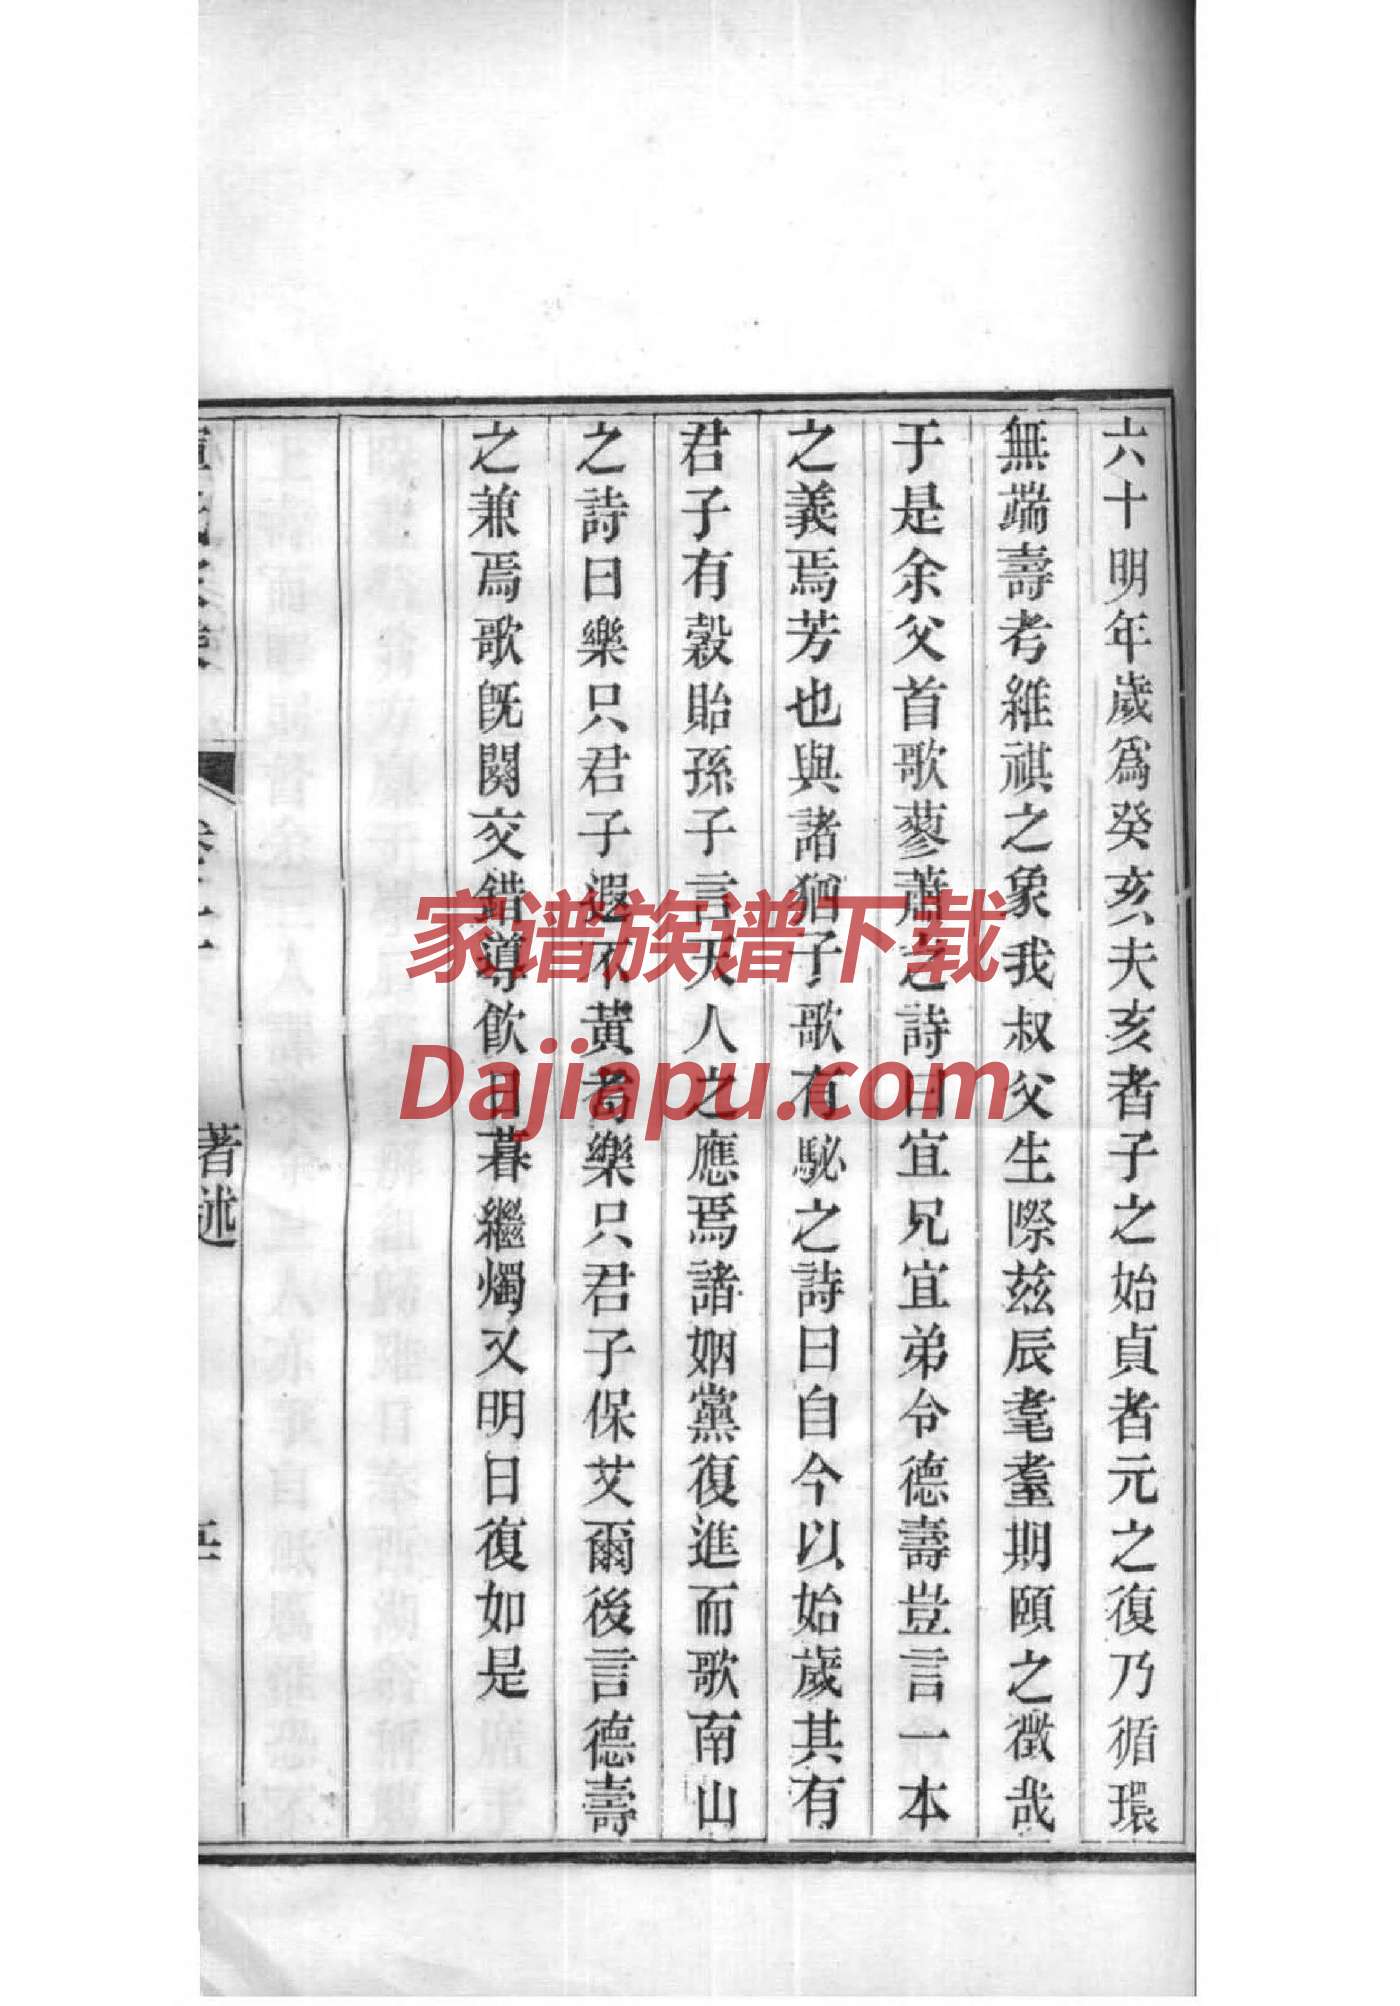 六十明年歲爲癸亥夫亥者子之始貞者元之復乃循環
無端壽考維祺之象我叔父生際玆辰耄耋期頤之徵哉
于是余父首歌蓼蕭之詩曰宜兄宜弟令德壽豈言一本
之義焉芳也與諸猶子歌有駜之詩曰自今以始歲其有
君子有穀貽孫子言天人之應焉諸姻黨復進而歌南山
之詩曰樂只君子遐不黃耇樂只君子保艾爾後言德壽
之兼焉歌旣闋交錯導飮日暮繼燭又明日復如是
著述
家谱族谱下载
Dajiapu.com